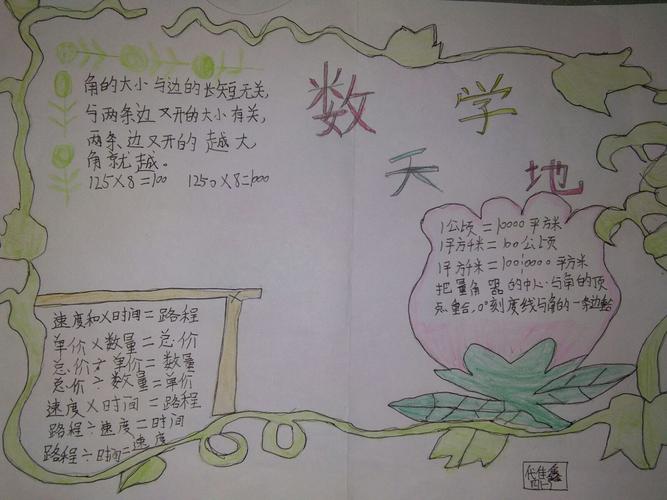 数学
天地
角的大小与边的长短无关,
与两条边叉开的大小有关,
两条边叉开的越大,
角就越。
125×8=100 1250×8=1000
1公顷=10000平方米
1平方千米=100公顷
1平方千米=1000000平方米
把量角器的中心与角的顶
点重合,0°刻度线与角的一条边重合
速度和×时间=路程
单价×数量=总价
总价÷单价=数量
总价÷数量=单价
速度×时间=路程
路程÷速度=时间
路程÷时间=速度